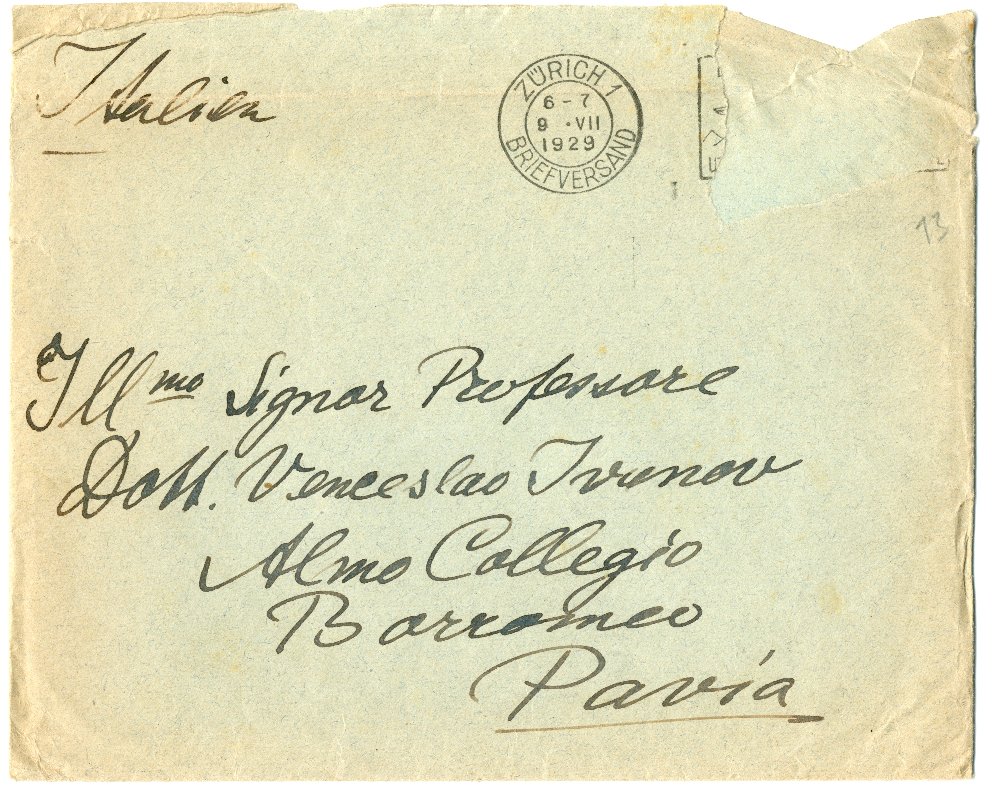 Italien
ZÜRICH 1
6-7
9 ·VII
1929
BRIEFVERSAND
13
Ill^mo Signor Professore
Dott. Venceslao Ivanov
Almo Collegio
Borromeo
Pavia